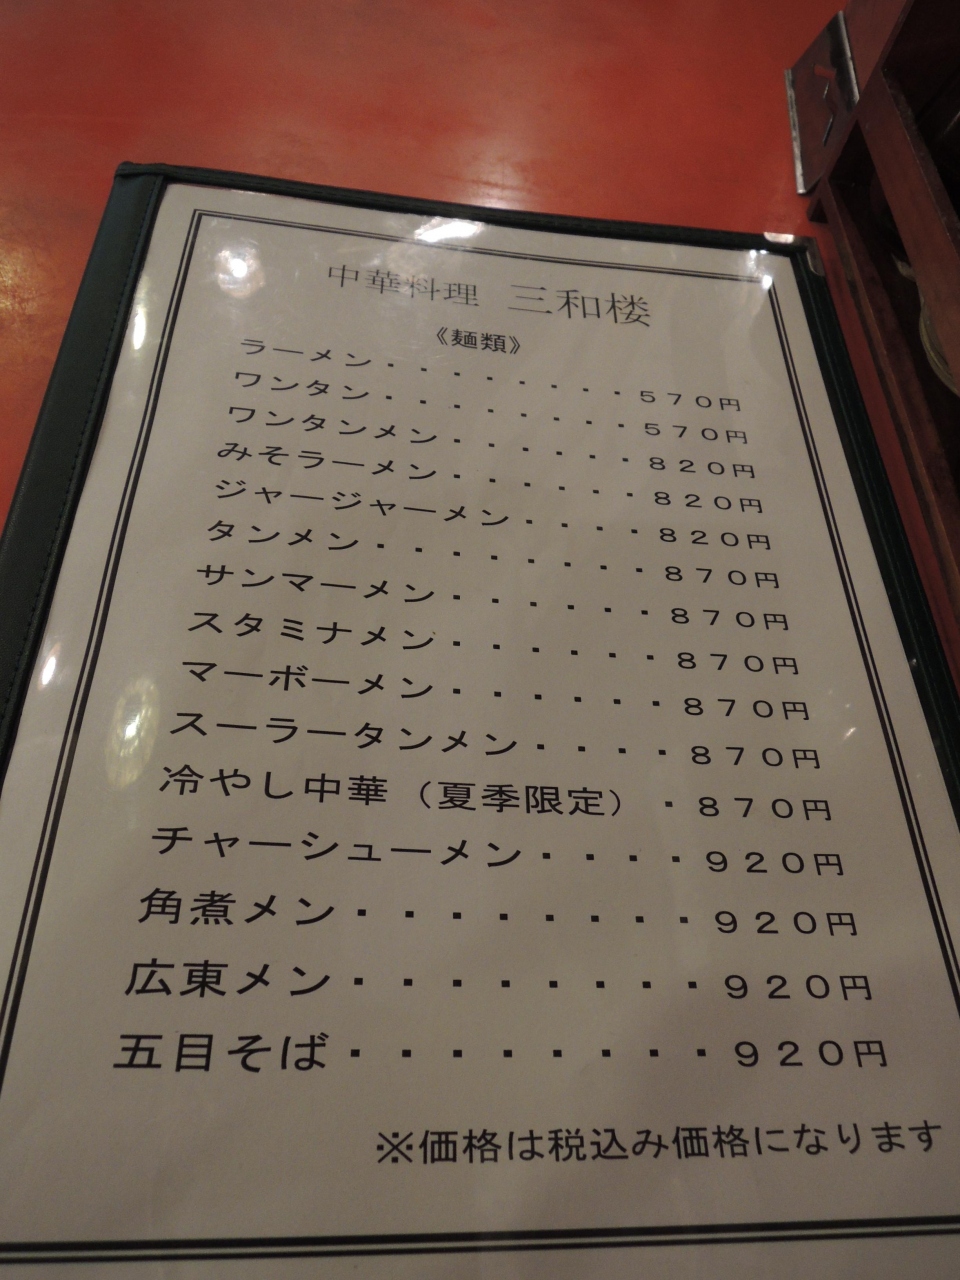 中華料理 三和楼
《麺類》
ラーメン・・・・・・・・・570円
ワンタン・・・・・・・・・570円
ワンタンメン・・・・・・・820円
みそラーメン・・・・・・・820円
ジャージャーメン・・・・・820円
タンメン・・・・・・・・・870円
サンマーメン・・・・・・・870円
スタミナメン・・・・・・・870円
マーボーメン・・・・・・・870円
スーラータンメン・・・・・870円
冷やし中華（夏季限定）・870円
チャーシューメン・・・・・920円
角煮メン・・・・・・・・・920円
広東メン・・・・・・・・・920円
五目そば・・・・・・・・・920円
※価格は税込み価格になります